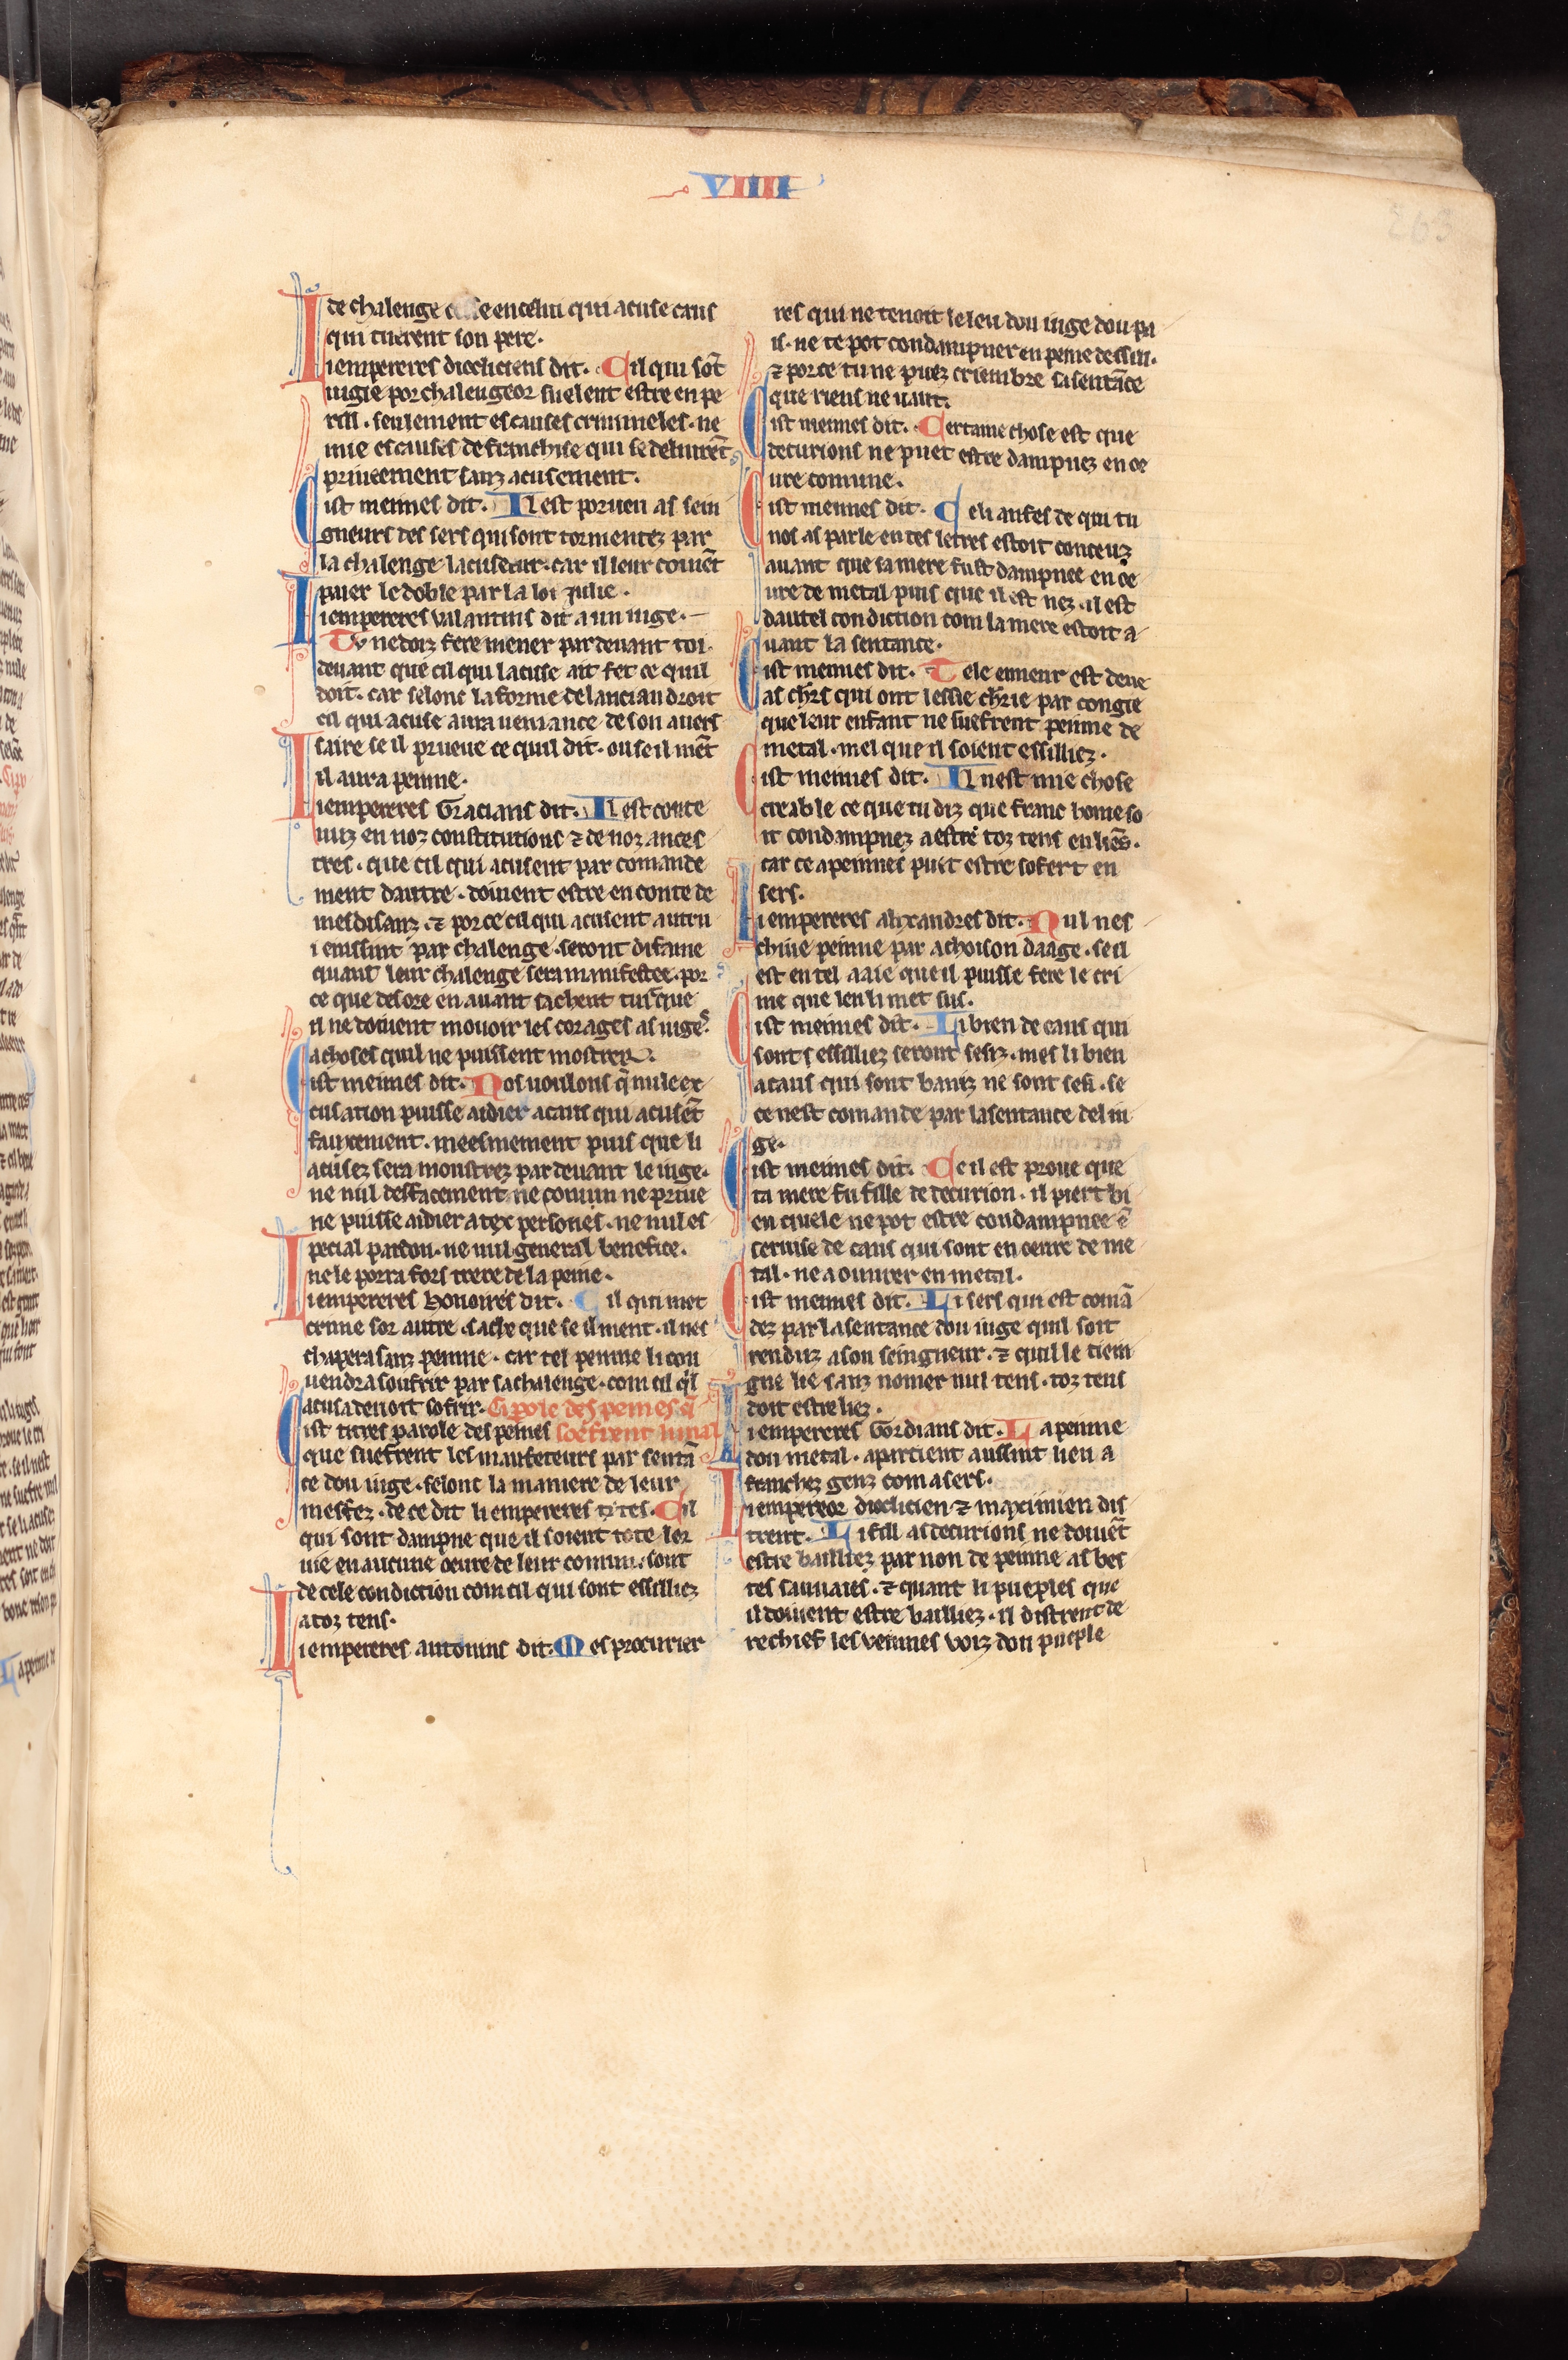 VIIII
263
de chalenge cesse en celui qui acuse caus
qui tuerent son pere.
Li empereres diocliciens dit. Cil qui sōt
iugie por chalengeor suelent estre en pe
rill. seulement es causes crimineles. ne
mie es causes de franchise qui se deliurēt
priueement sanz acusement.
Cist meimes dit. Il est porueu as sein
gneurs des sers qui sont tormentez par
la chalenge lacuseeur. car il leur couiēt
paier le doble par la loi Julie.
Li empereres valantins dit a un iuge.
Tu ne doiz fere mener par deuant toi.
deuant que cil qui lacuse ait fet ce quil
doit. car selonc la forme de lancian droit
cil qui acuse aura ueniance de son auers
saire se il prueue ce quil dit. ou se il mēt
il aura peinne.
Li empereres Gracians dit. Il est conte
nuz en noz constitutions ⁊ de noz ances
tres. que cil qui acusent par comande
ment dautre. doiuent estre en conte de
mesdisanz. ⁊ por ce cil qui acusent autru
i enssint par chalenge. seront difame
quant leur chalenge sera manifestee. por
ce que desore en auant sachent tuit que
il ne doiuent mouoir les corages as iuges
a choses quil ne puissent mostrer.
Cist meimes dit. Nos uoulons q̄ nule ex
cusation puisse aidier a caus qui acusēt
faucement. meesmement puis que li
acusez sera monstrez par deuant le iuge.
ne nul deffacement ne comun ne priue
ne puisse aidier a tex persones. ne nul es
pecial pardon. ne nul general benefice.
ne le porra fors trere de la peine.
Li empereres honoires dit. Cil qui met
crime sor autre. sache que se il ment. il nes
chapera sanz peinne. car tel peinne li cou
uendra soufrir par sa chalenge. com cil q̄l
acusa deuoit sofrir. Ci parole des peines q̄
Cist titres parole des peines soefrent li mal
que suefrent les maufeteurs par sentā
ce dou iuge. selonc la maniere de leur
mesfez. de ce dit li empereres tites. Cil
qui sont dampne que il soient tote lor
uie en aucune oeure de leur comun. sont
de cele condiction com cil qui sont essilliez
a toz tens.
Li empereres antonins dit. Mes procurier
res qui ne tenoit le leu dou iuge dou pa
is. ne te pot condampner en peine dessill.
⁊ por ce tu ne puez criembre sa sentāce
que riens ne uaut.
Cist meimes dit. Certaine chose est que
decurions ne puet estre dampnez en oe
ure comune.
Cist meimes dit. Celi anfes de qui tu
nos as parle en tes letres estoit conceuz
auant que sa mere fust dampnee en oe
ure de metal puis que il est nez. il est
dautel condiction com la mere estoit a
uant la sentance.
Cist meimes dit. Tele enneur est deue
as chrs qui ont lessie chrie par congie
que leur enfant ne suefrent peinne de
metal. mes que il soient essilliez.
Cist meimes dit. Il nest mie chose
creable ce que tu diz que franc home so
it condampnez a estre toz tens en liēs.
car ce a peinnes puit estre sofert en
sers.
Li empereres alixandres dit. Nul nes
chiue peinne par achoison daage. se il
est en tel aaie que il puisse fere le cri
me que len li met sus.
Cist meimes dit. Li bien de caus qui
sont essilliez seront sesiz. mes li bien
a caus qui sont baniz ne sont sesi. se
ce nest comande par la sentance del iu
ge.
Cist meimes dit. Ce il est proue que
ta mere fu fille de decurion. il piert bi
en quele ne pot estre condampnee ē
seruise de caus qui sont en oeure de me
tal. ne a ouurer en metal.
Cist meimes dit. Li sers qui est comā
dez par la sentance dou iuge quil soit
renduz a son seingneur. ⁊ quil le tiem
gne lie sanz nomer nul tens. toz tens
doit estre liez.
Li empereres Gordians dit. La peinne
dou metal. apartient aussint lieu a
franches genz com a sers.
Li empereor dioclicien ⁊ maximien dis
trent. Li fill as decurions ne doiuēt
estre bailliez par non de peinne as bes
tes sauuaies. ⁊ quant li pueples que
il doiuent estre bailliez. il distrent de
rechief les veinnes voiz dou pueple